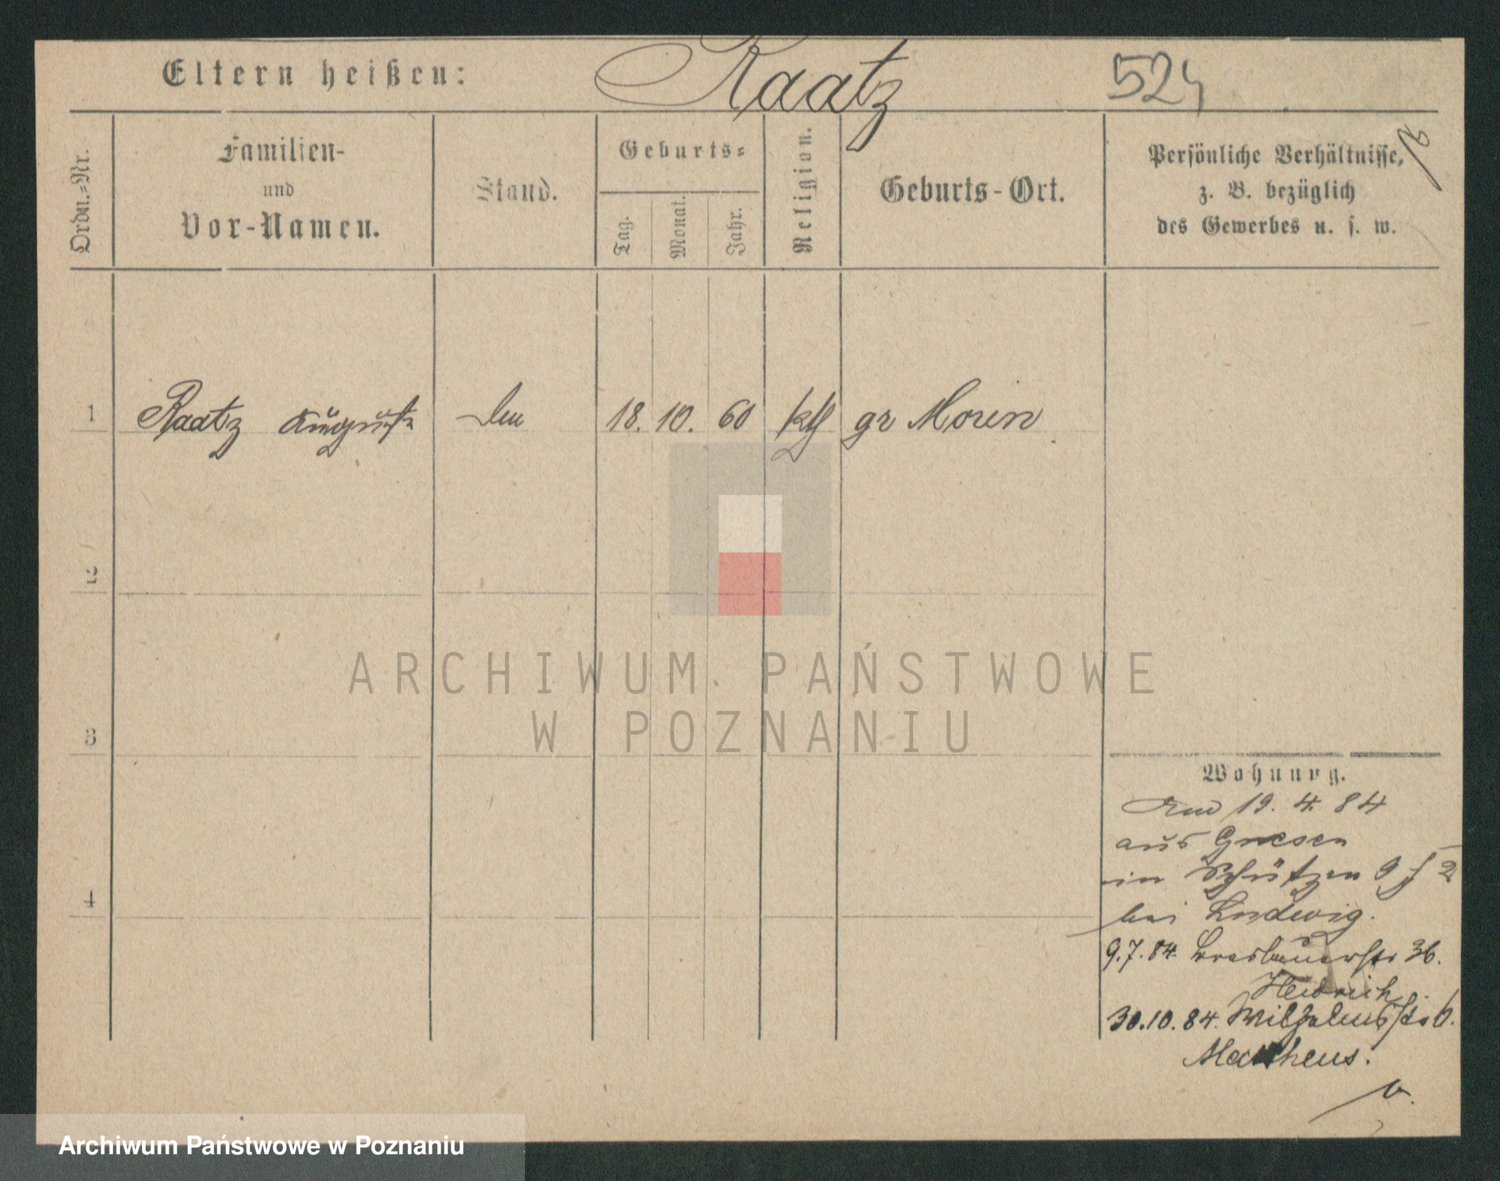 Eltern heißen: Raatz 524
Ordn.-Nr.
Familien-
und
Vor-Namen.
Stand.
Geburts-
Tag.
Monat.
Jahr.
Religion.
Geburts-Ort.
Persönliche Verhältnisse,
z. B. bezüglich
des Gewerbes u. s. w.
1 Raatz August 18. 10. 60 kth gr Morin
2
3
4
ARCHIWUM PAŃSTWOWE
W POZNANIU
Wohnung.
19. 4. 84
aus Gnesen
in Schützen 2
bei Ludwig.
9.7.84. Breslauerstr 36.
30.10.84. Wilhelmsstr 6.
Mattheus.
Archiwum Państwowe w Poznaniu